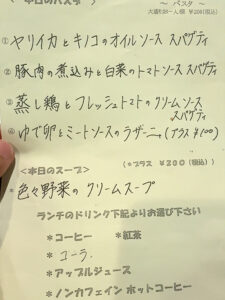 〜本日のパスタ〜
〜 パスタ 〜
大盛り
¥200(税込)
①ヤリイカとキノコのオイルソース スパゲティ
②豚肉の煮込みと白菜のトマトソース スパゲティ
③蒸し鶏とフレッシュトマトのクリームソース
スパゲティ
④ゆで卵とミートソースのラザーニャ(プラス¥100)
〈本日のスープ〉
(*プラス ¥200(税込))
*色々野菜の クリームスープ
ランチのドリンク下記よりお選び下さい
*コーヒー *紅茶
*コーラ
*アップルジュース
*ノンカフェイン ホットコーヒー